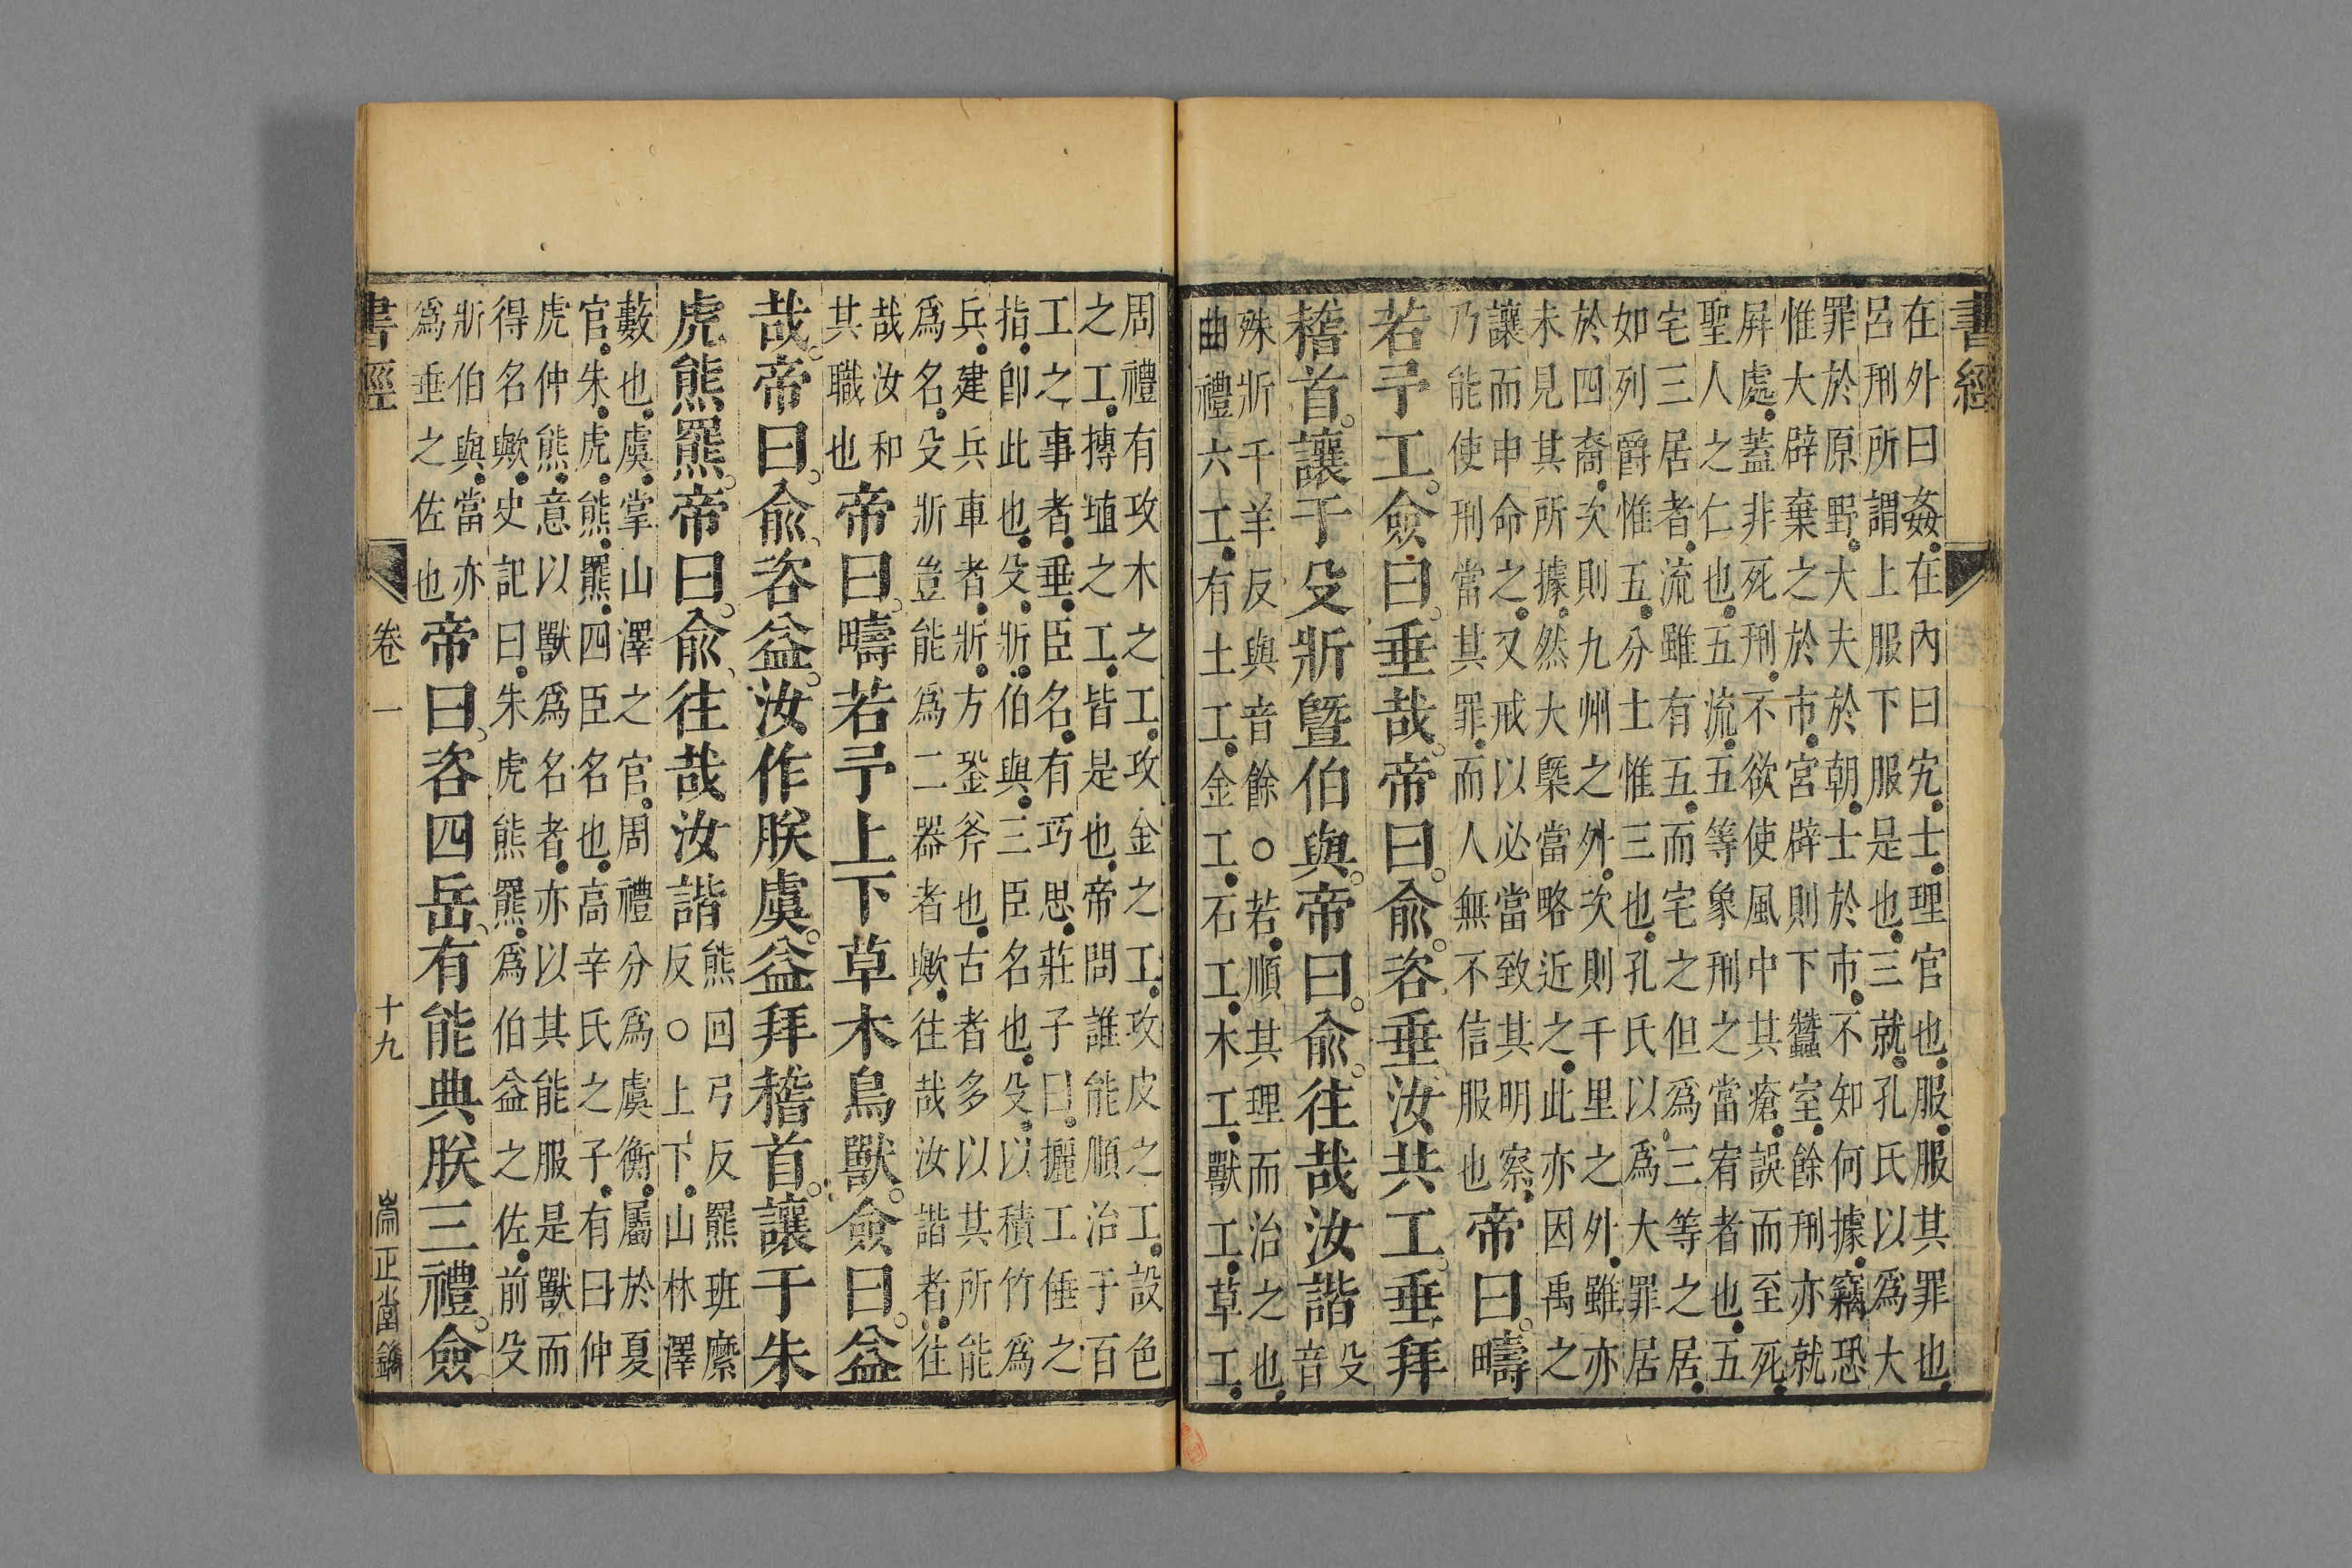 書經
在外曰姦在內曰宄士理官也服服其罪也
呂刑所謂上服下服是也三就孔氏以爲大
罪於原野大夫於朝士於市不知何據竊恐
惟大辟棄之於市宮辟則下蠶室餘刑亦就
屏處蓋非死刑不欲使風中其瘡誤而至死
聖人之仁也五流五等象刑之當宥者也五
宅三居者流雖有五而宅之但爲三等之居
如列爵惟五分土惟三也孔氏以爲大罪居
於四裔次則九州之外次則千里之外雖亦
未見其所據然大槩當略近之此亦因禹之
讓而申命之又戒以必當致其明察
乃能使刑當其罪而人無不信服也
帝曰疇
若予工僉曰垂哉帝曰俞咨垂汝共工垂拜
稽首讓于殳斨暨伯與帝曰俞往哉汝諧
殳
音
殊斨千羊反與音餘○若順其理而治之也
曲禮六工有土工金工石工木工獸工草工
周禮有攻木之工攻金之工攻皮之工設色
之工搏埴之工皆是也帝問誰能順治于百
工之事者垂臣名有巧思莊子曰攦工倕之
指卽此也殳斨伯與三臣名也殳以積竹爲
兵建兵車者斨方銎斧也古者多以其所能
爲名殳斨豈能爲二器者歟往哉汝諧者往
哉汝和
其職也
帝曰疇若予上下草木鳥獸僉曰益
哉帝曰俞咨益汝作朕虞益拜稽首讓于朱
虎熊羆帝曰俞往哉汝諧
熊回弓反羆班縻
反○上下山林澤
藪也虞掌山澤之官周禮分爲虞衡屬於夏
官朱虎熊羆四臣名也高辛氏之子有曰仲
虎仲熊意以獸爲名者亦以其能服是獸而
得名歟史記曰朱虎熊羆爲伯益之佐前殳
斨伯與當亦
爲垂之佐也
帝曰咨四岳有能典朕三禮僉
書經 卷一 十九 崇正堂鐫